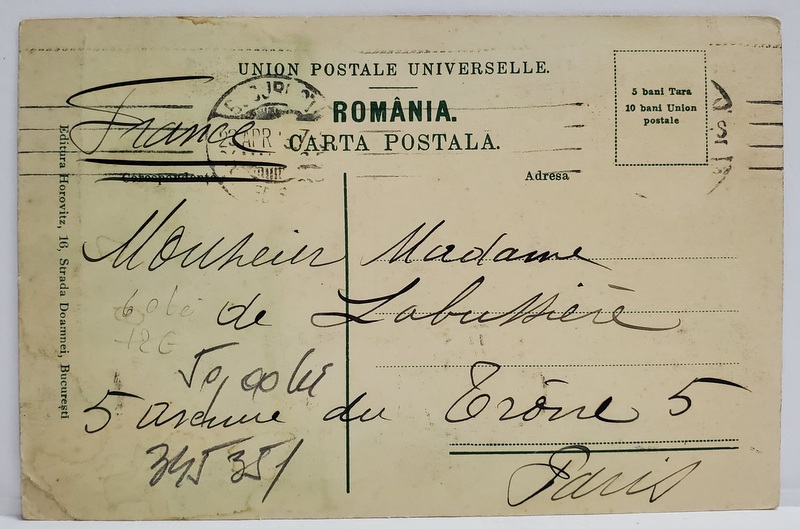 UNION POSTALE UNIVERSELLE.
ROMÂNIA.
CARTA POSTALA.
5 bani Tara
10 bani Union
postale
France
23 APR
Corespondenta
Adresa
Editura Horovitz, 16, Strada Doamnei, Bucureşti
Monsieur Madame
de Labussière
5 avenue du Trône 5
Paris
345351